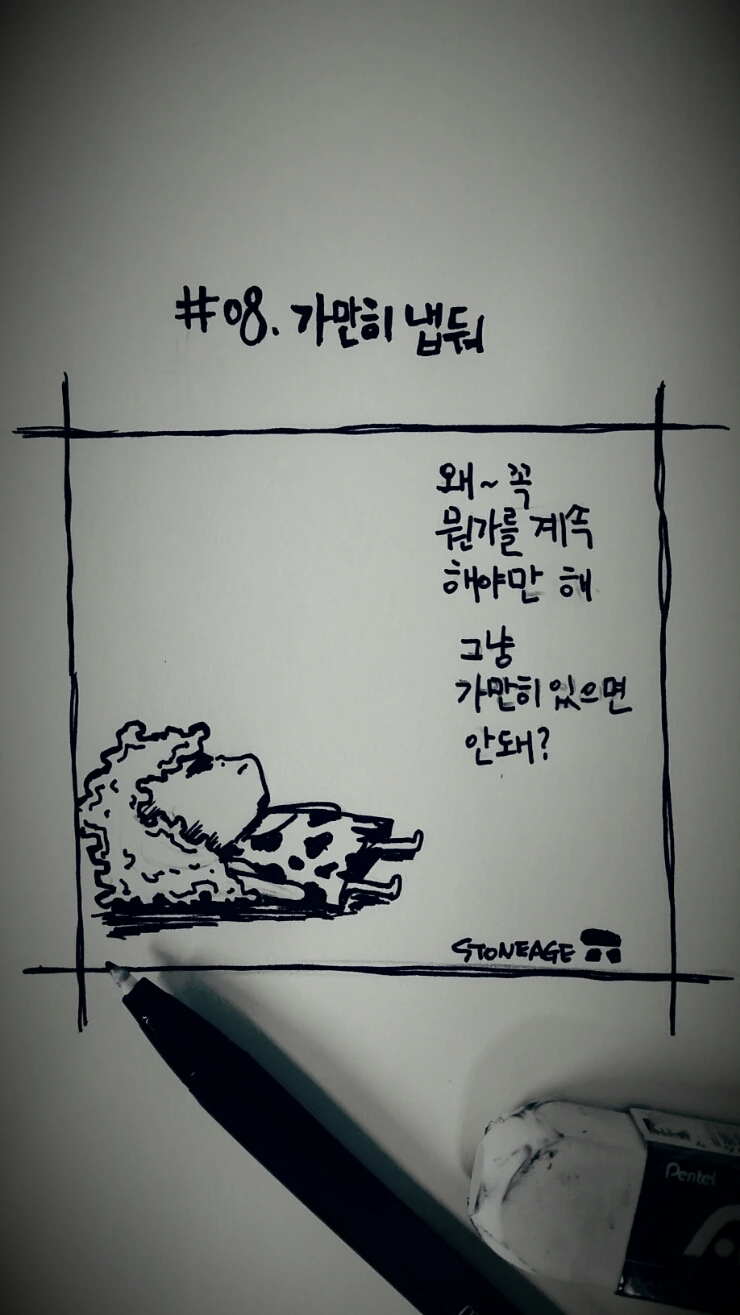 #08. 가만히 냅둬
왜~ 꼭
뭔가를 계속
해야만 해
그냥
가만히 있으면
안돼?
STONEAGE
Pentel